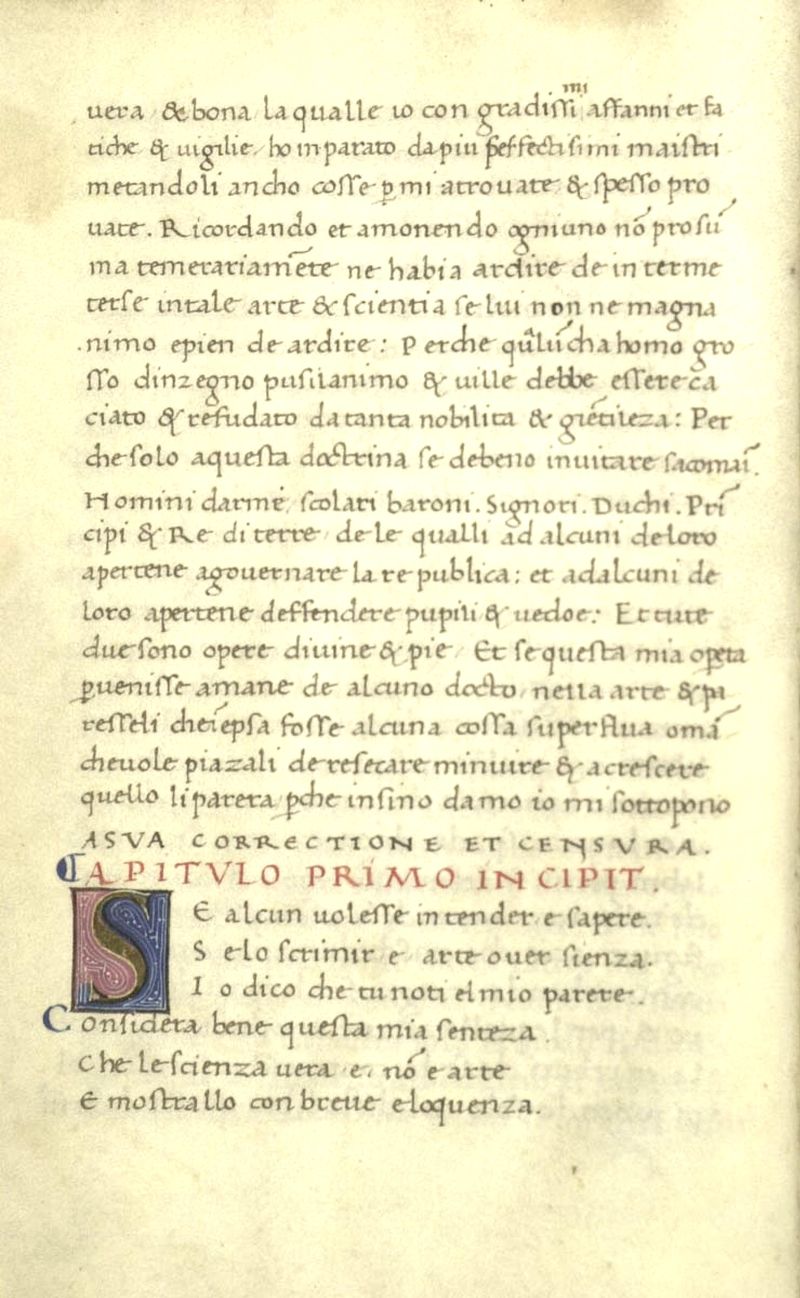 uera & bona la qualle io con gradissi mi affanni et fa
tiche & uigilie ho inparato da piu p̱effectissimi maistri
metandoli ancho cosse ꝑ mi atrouate & spesso pro
uate. Ricordando et amonendo ogniuno nō prosu
ma temerariamēte ne habia ardire de in terme
terse in tale arte & scientia se lui non ne magna
nimo e pien de ardire: Perche qūlūcha homo gro
sso dinzegno pusilanimo & uille debbe essere ca
ciato & refudato da tanta nobilita & giētileza: Per
che solo a questa doctrina se debeno inuitare sacomāī.
Homini darme, scolari baroni. Signori. Duchi. Prī
cipi & Re di terre de le qualli ad alcuni de loro
apertene a gouernare la re publica: et ad alcuni de
loro apertene deffendere pupili & uedoe: Et tute
due sono opere diuine & pie Et se questa mia opera
ꝑuenisse a mane de alcuno docto nella arte & pa
resseli che ī epsa fosse alcuna cossa superflua o mā
che uole piazali de resecare minuire & acrescere
quello li parera ꝑche insino da mo io mi sottopono
A SVA CORRECTIONE ET CENSVRA.
CAPITVLO PRIMO INCIPIT.
SE alcun uolesse intender e sapere.
Se lo scrimir e arte ouer sienza.
Io dico che tu noti el mio parere.
Considera bene questa mia sentēza.
Che le scienza uera e, nō e arte
E mostrallo con breue eloquenza.